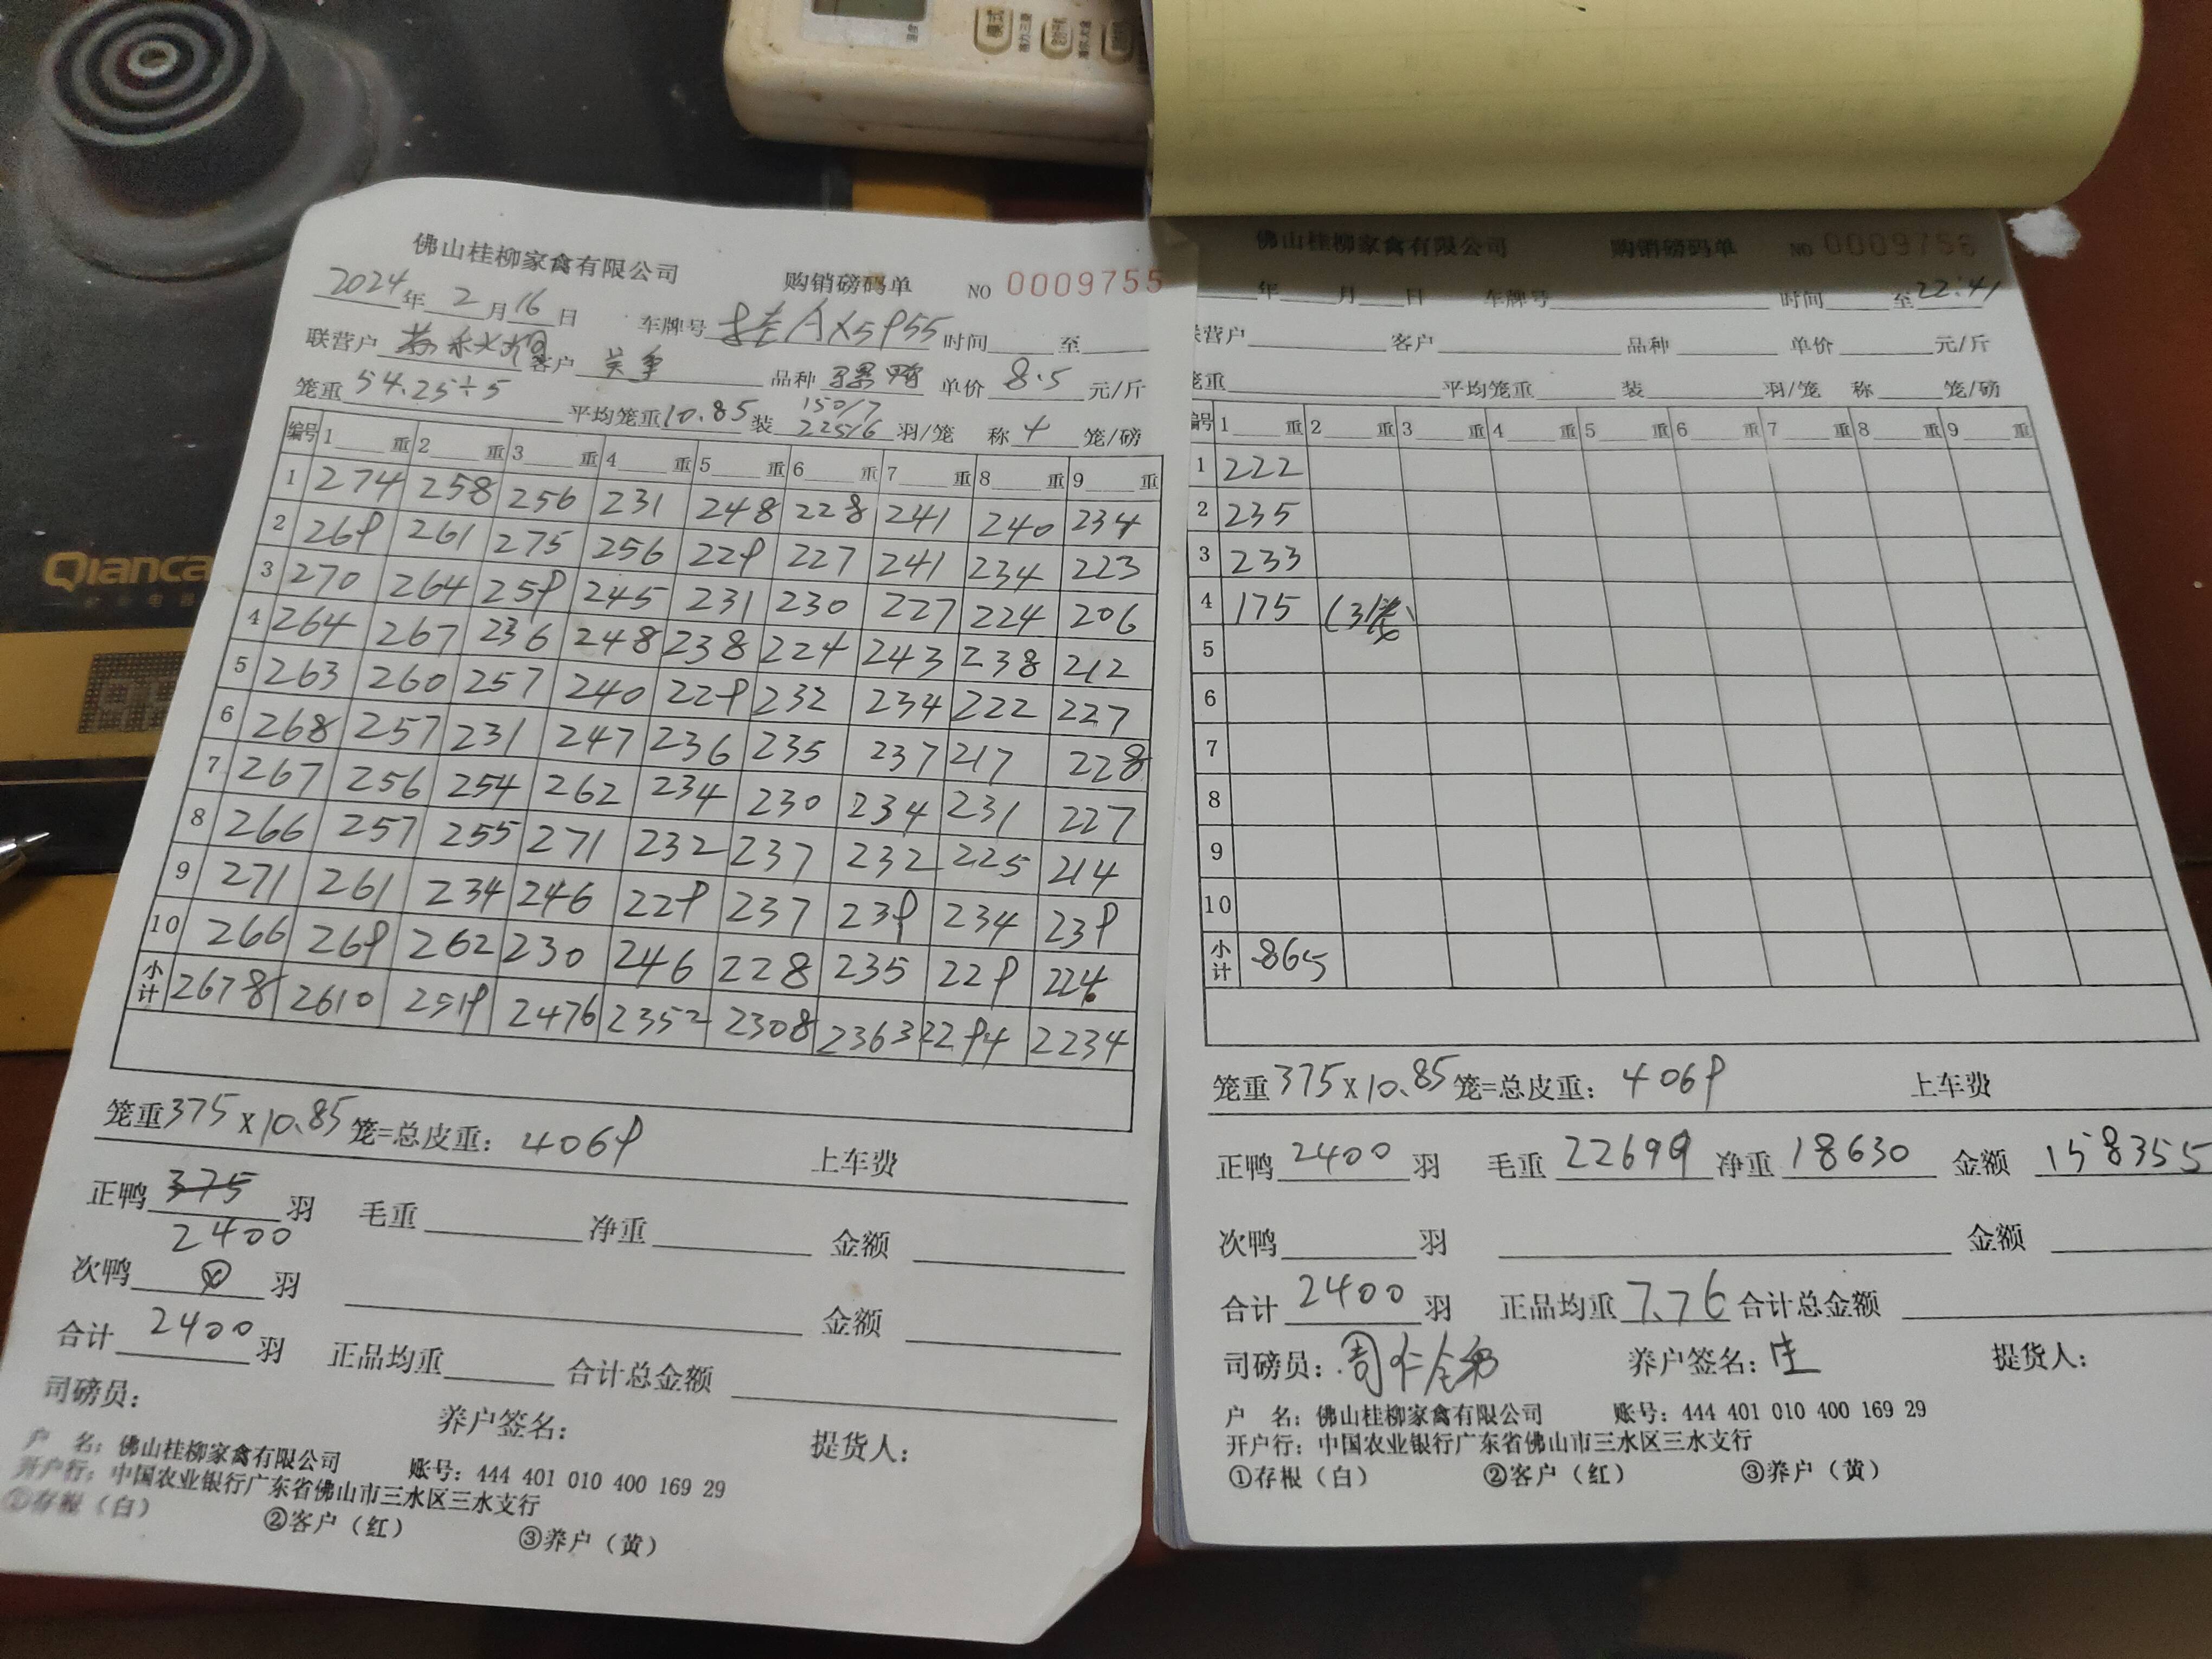 模式
Qianca
佛山桂柳家禽有限公司 购销磅码单 NO 0009755
2024年2月16日 车牌号 桂AX5955 时间 至
联营户 客户 品种 单价 8.5 元/斤
笼重 54.25÷5 平均笼重 10.85 装 150/7 225/6 羽/笼 称 4 笼/磅
编号 1 重 2 重 3 重 4 重 5 重 6 重 7 重 8 重 9 重
1 274 258 256 231 248 228 241 240 234
2 269 261 275 256 229 227 241 234 223
3 270 264 259 245 231 230 227 224 206
4 264 267 236 248 238 224 243 238 212
5 263 260 257 240 229 232 234 222 227
6 268 257 231 247 236 235 237 217 228
7 267 256 254 262 234 230 234 231 227
8 266 257 255 271 232 237 232 225 214
9 271 261 234 246 229 237 239 234 239
10 266 269 262 230 246 228 235 229 224
小计 2678 2610 2519 2476 2352 2308 2363 2294 2234
笼重 375 x 10.85 笼=总皮重: 4069 上车费
正鸭 375 羽 毛重 净重 金额
2400
次鸭 羽 金额
合计 2400 羽 正品均重 合计总金额
司磅员: 养户签名: 提货人:
户 名: 佛山桂柳家禽有限公司 账号: 444 401 010 400 169 29
开户行: 中国农业银行广东省佛山市三水区三水支行
①存根(白) ②客户(红) ③养户(黄)
佛山桂柳家禽有限公司 购销磅码单 NO 0009756
年 月 日 车牌号 时间 至 22:41
联营户 客户 品种 单价 元/斤
笼重 平均笼重 装 羽/笼 称 笼/磅
编号 1 重 2 重 3 重 4 重 5 重 6 重 7 重 8 重 9 重
1 222
2 235
3 233
4 175 (3
5
6
7
8
9
10
小计 865
笼重 375 x 10.85 笼=总皮重: 4069 上车费
正鸭 2400 羽 毛重 22699 净重 18630 金额 158355
次鸭 羽 金额
合计 2400 羽 正品均重 7.76 合计总金额
司磅员: 养户签名: 提货人:
户 名: 佛山桂柳家禽有限公司 账号: 444 401 010 400 169 29
开户行: 中国农业银行广东省佛山市三水区三水支行
①存根(白) ②客户(红) ③养户(黄)